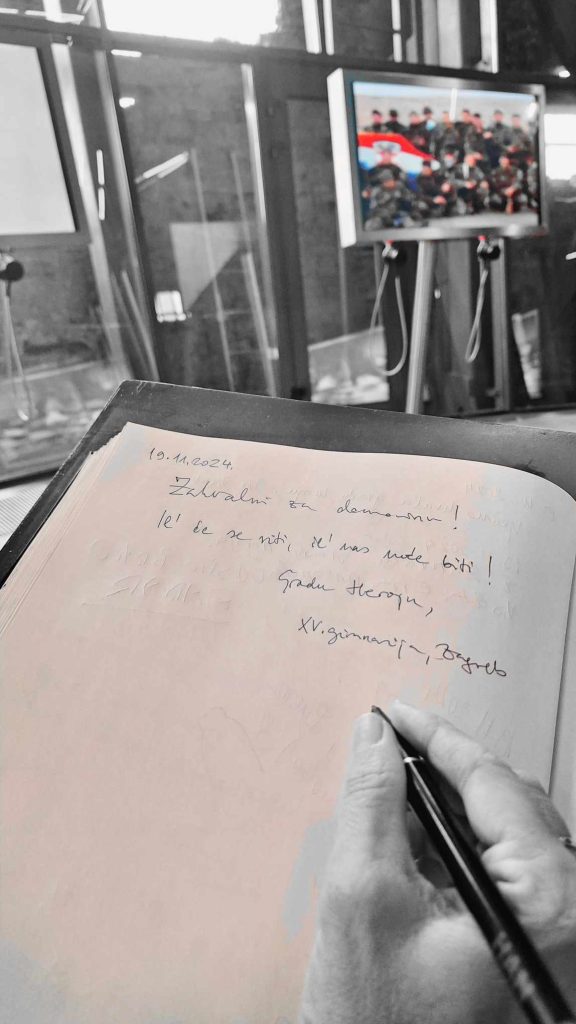 19.11.2024.
Zahvalni za domovinu!
Il' će se viti, il' nas neće biti!
Gradu Heroju,
XV. gimnazija, Zagreb